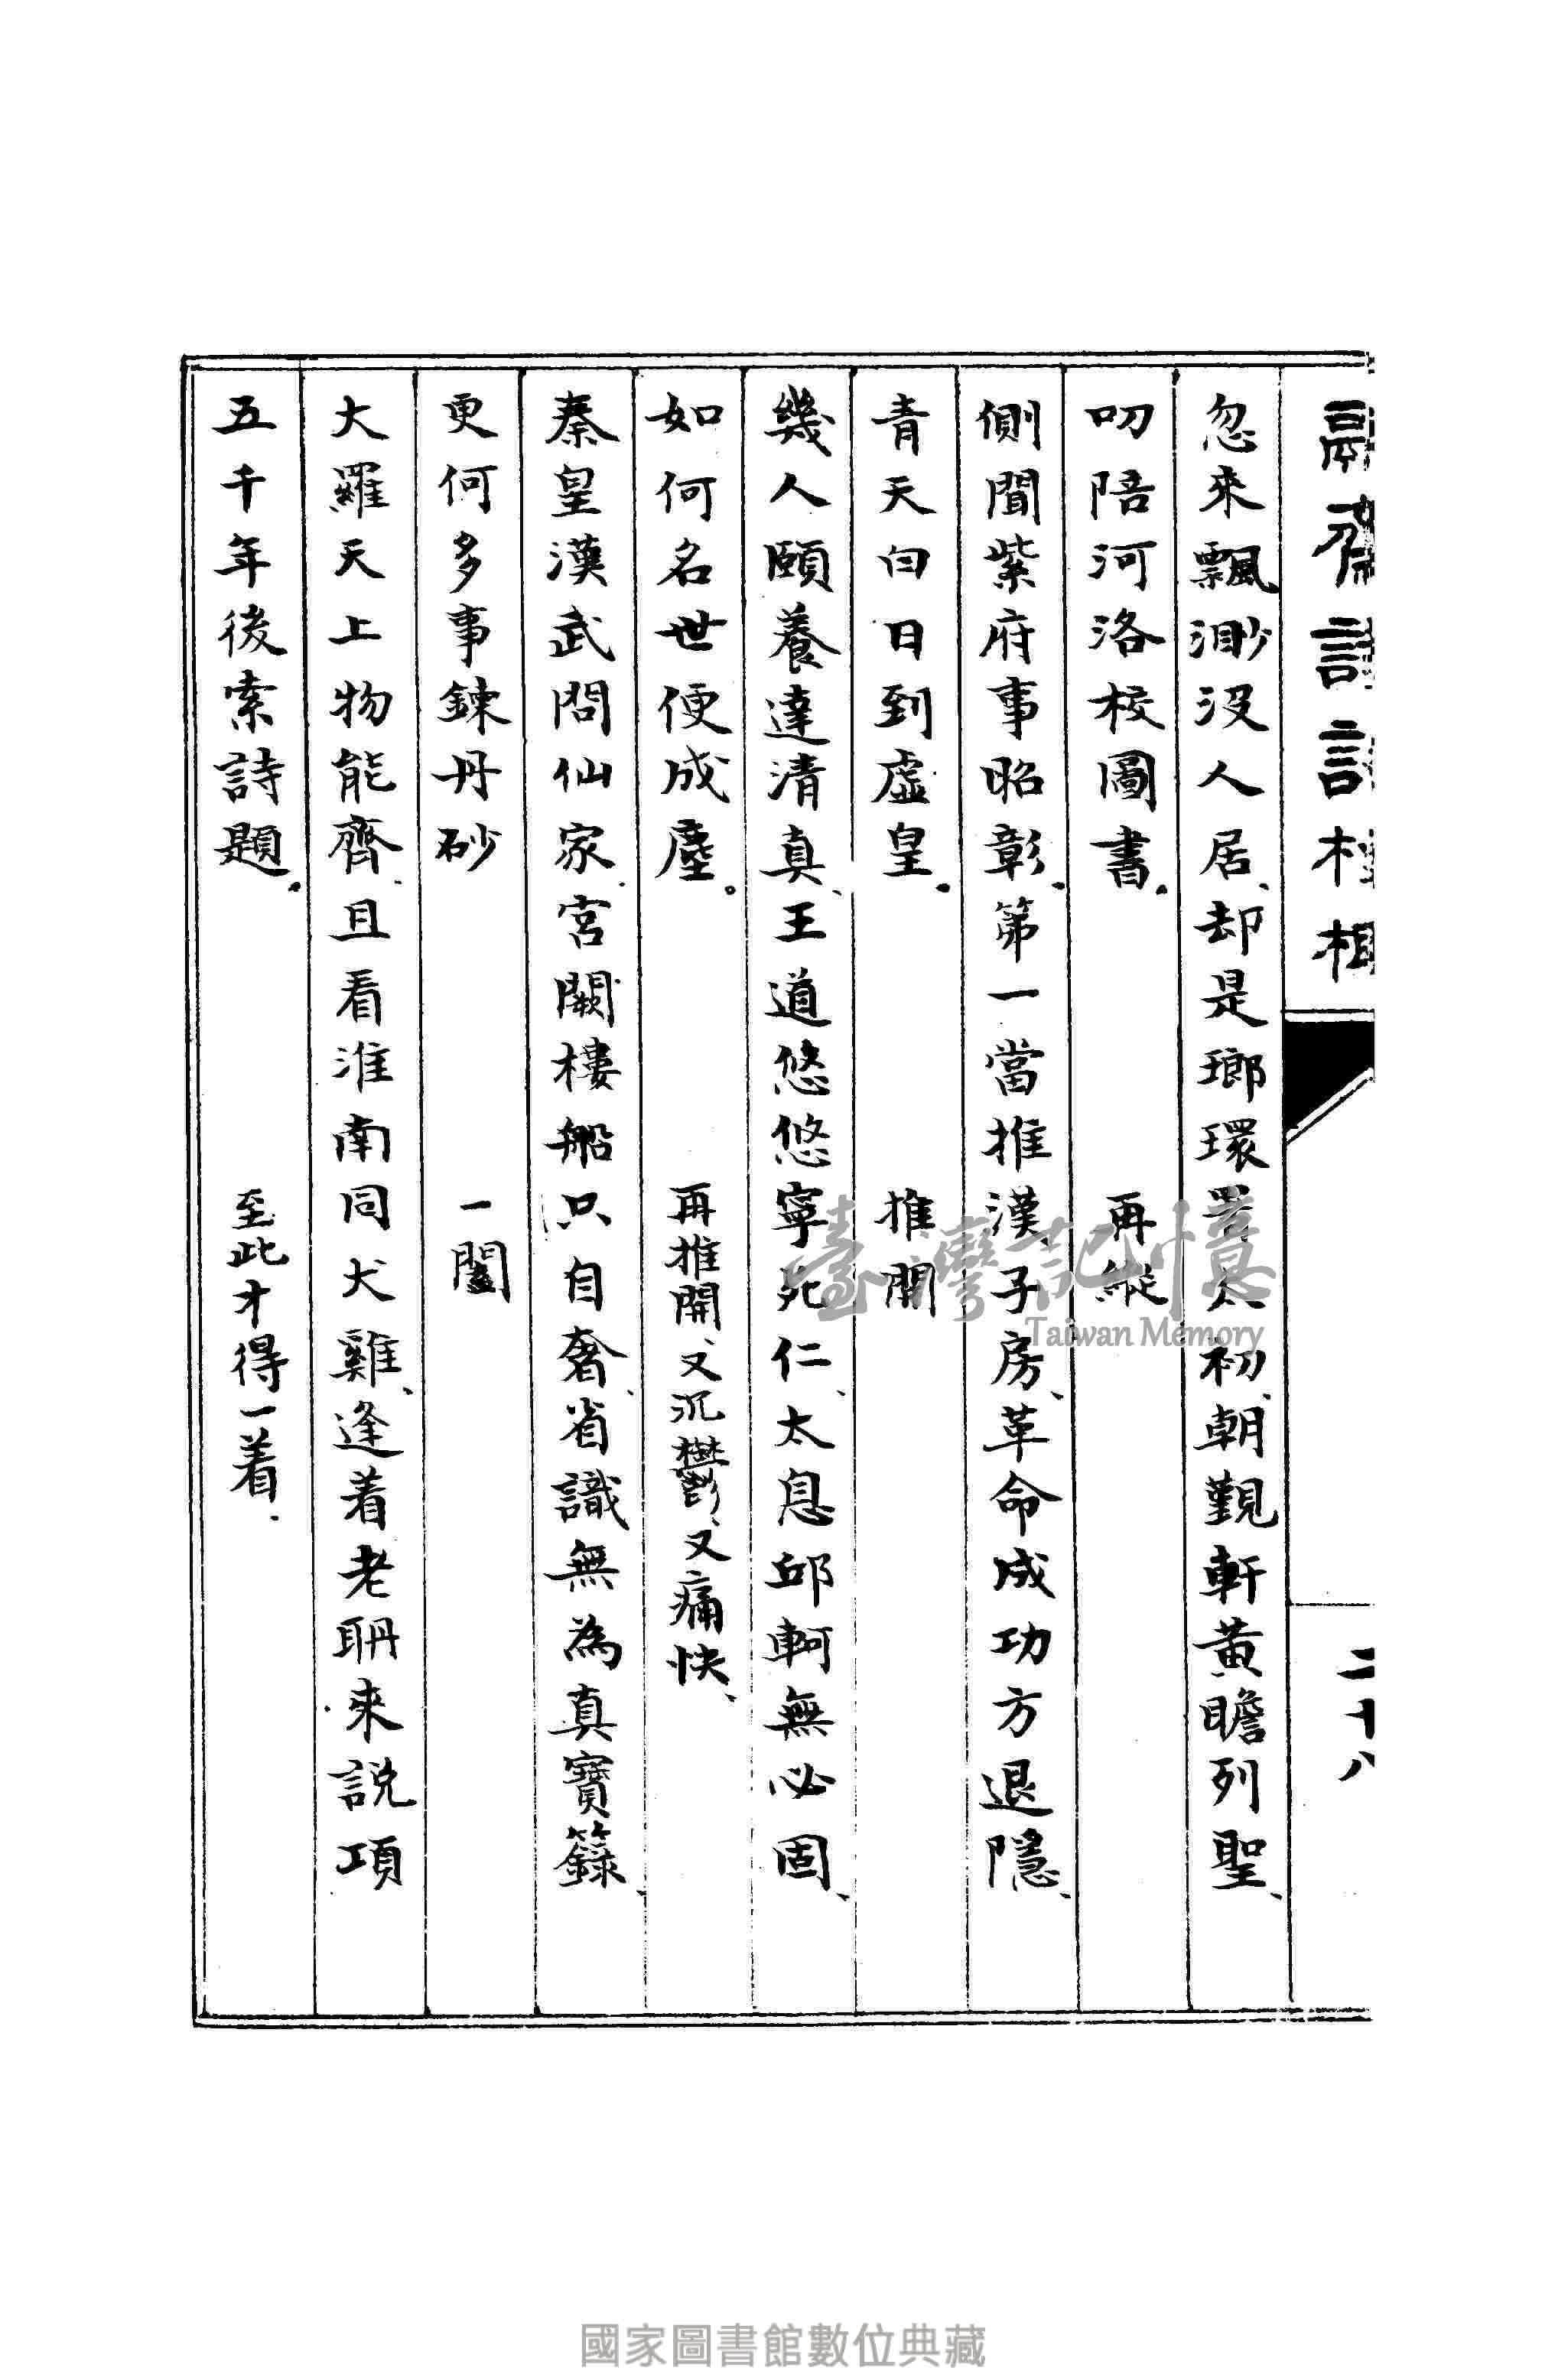 二十八
忽來飄渺没人居、却是瑯環署太初、朝覲軒黃瞻列聖、
叨陪河洛校圖書。 再縱
側聞紫府事昭彰、第一當推漢子房、革命成功方退隱、
青天白日到虛皇。 推開
幾人頤養達清真、王道悠悠寧死仁、太息邱軻無必固、
如何名世便成塵。 再推開、又沉鬱、又痛快、
秦皇漢武問仙家、宮闕樓船只自奢、省識無為真寶籙、
更何多事鍊丹砂 一闔
大羅天上物能齊、且看淮南同犬雞、逢着老聃來説項
五千年後索詩題。 至此才得一着.
臺灣記憶
Taiwan Memory
國家圖書館數位典藏